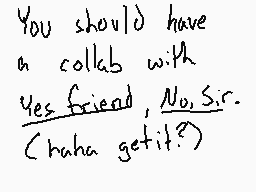 You should have
a collab with
Yes friend, No, Sir.
(haha get it?)